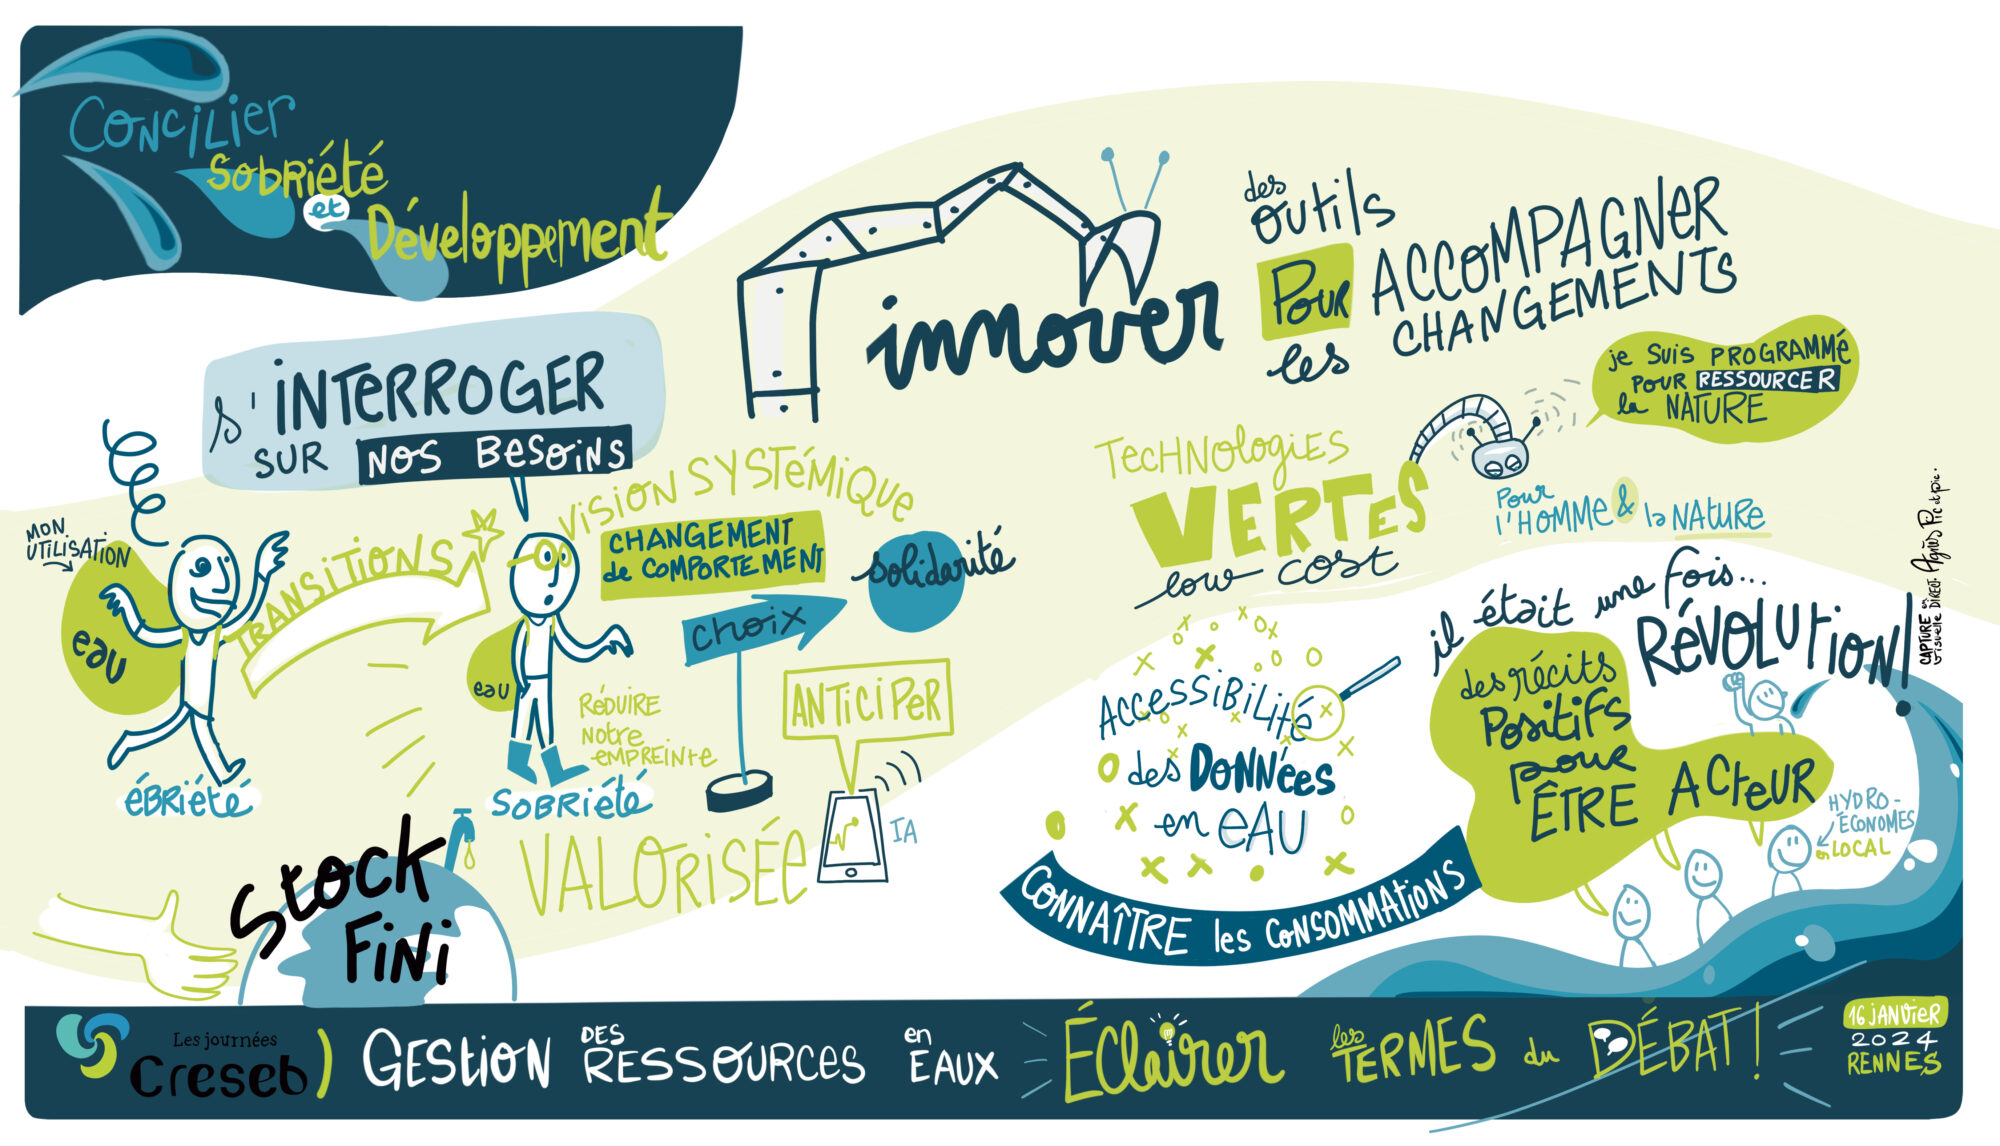 CONCILIER
SOBRIÉTÉ
et
Développement
s'INTERROGER
SUR NOS BESOINS
MON
UTILISATION
eau
ÉBRIÉTÉ
TRANSITIONS
VISION SYSTÉMIQUE
CHANGEMENT
de COMPORTEMENT
solidarité
choix
eau
RÉDUIRE
Notre
EMPREINTE
SOBRIÉTÉ
ANTICIPER
IA
VALORISÉE
Stock
Fini
innover
des
outils
Pour
les
ACCOMPAGNER
CHANGEMENTS
je SUIS PROGRAMMÉ
POUR RESSOURCER
la NATURE
TECHNOLOGIES
VERTES
low cost
Pour
l'HOMME & la NATURE
ACCESSIBILITÉ
des DONNÉES
en EAU
CONNAÎTRE les CONSOMMATIONS
il était une fois...
RÉVOLUTION!
des récits
Positifs
pour
ÊTRE ACTEUR
HYDRO-
ÉCONOMES
LOCAL
CAPTURE en
Visuelle DIRECT. Agnès Pic et pic.
Les journées
Creseb)
GESTION DES RESSOURCES en EAUX
ÉClairer les TERMES du DÉBAT !
16 JANVIER
2024
RENNES